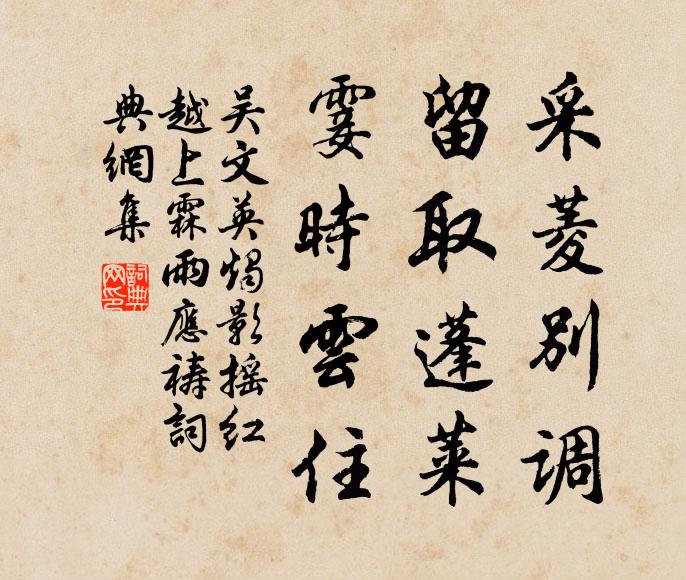 采菱别调
留取蓬莱
霎時雲住
吴文英燭影摇红
越上霖雨應禱詞
典網集
詞典網印